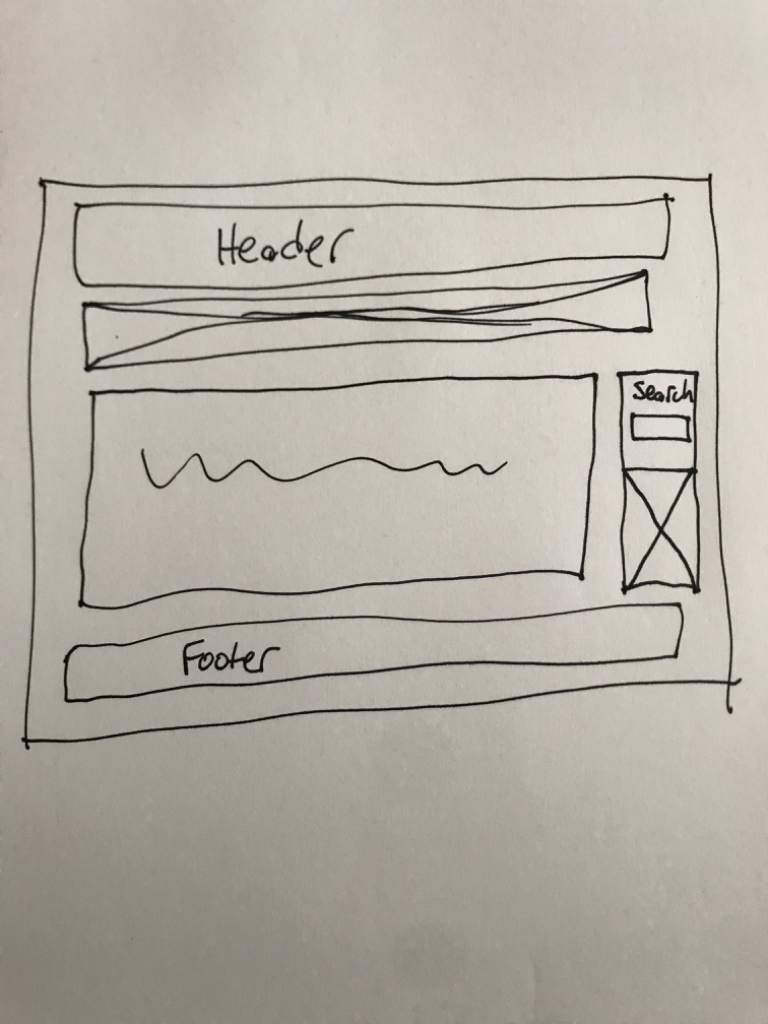 Header
Search
Footer